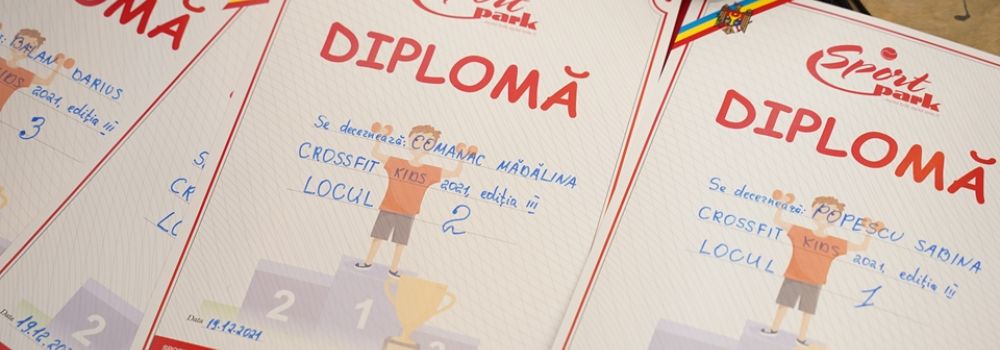 DIPLOMĂ
BALAN DARIUS
KIDS 2021, ediția III
3
2
Data 19.12.202
S
CR
LO
Sport
park
DIPLOMĂ
Se decernează: COMANAC MĂDĂLINA
CROSSFIT KIDS 2021, ediția III
LOCUL 2
2 1
Data 19.12.2021
Sport
park
DIPLOMĂ
Se decernează: POPESCU SABINA
CROSSFIT KIDS 2021, ediția III
LOCUL 1
2 1